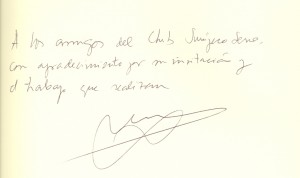 A los amigos del Club
con agradecimiento por su invitación y
el trabajo que realizan